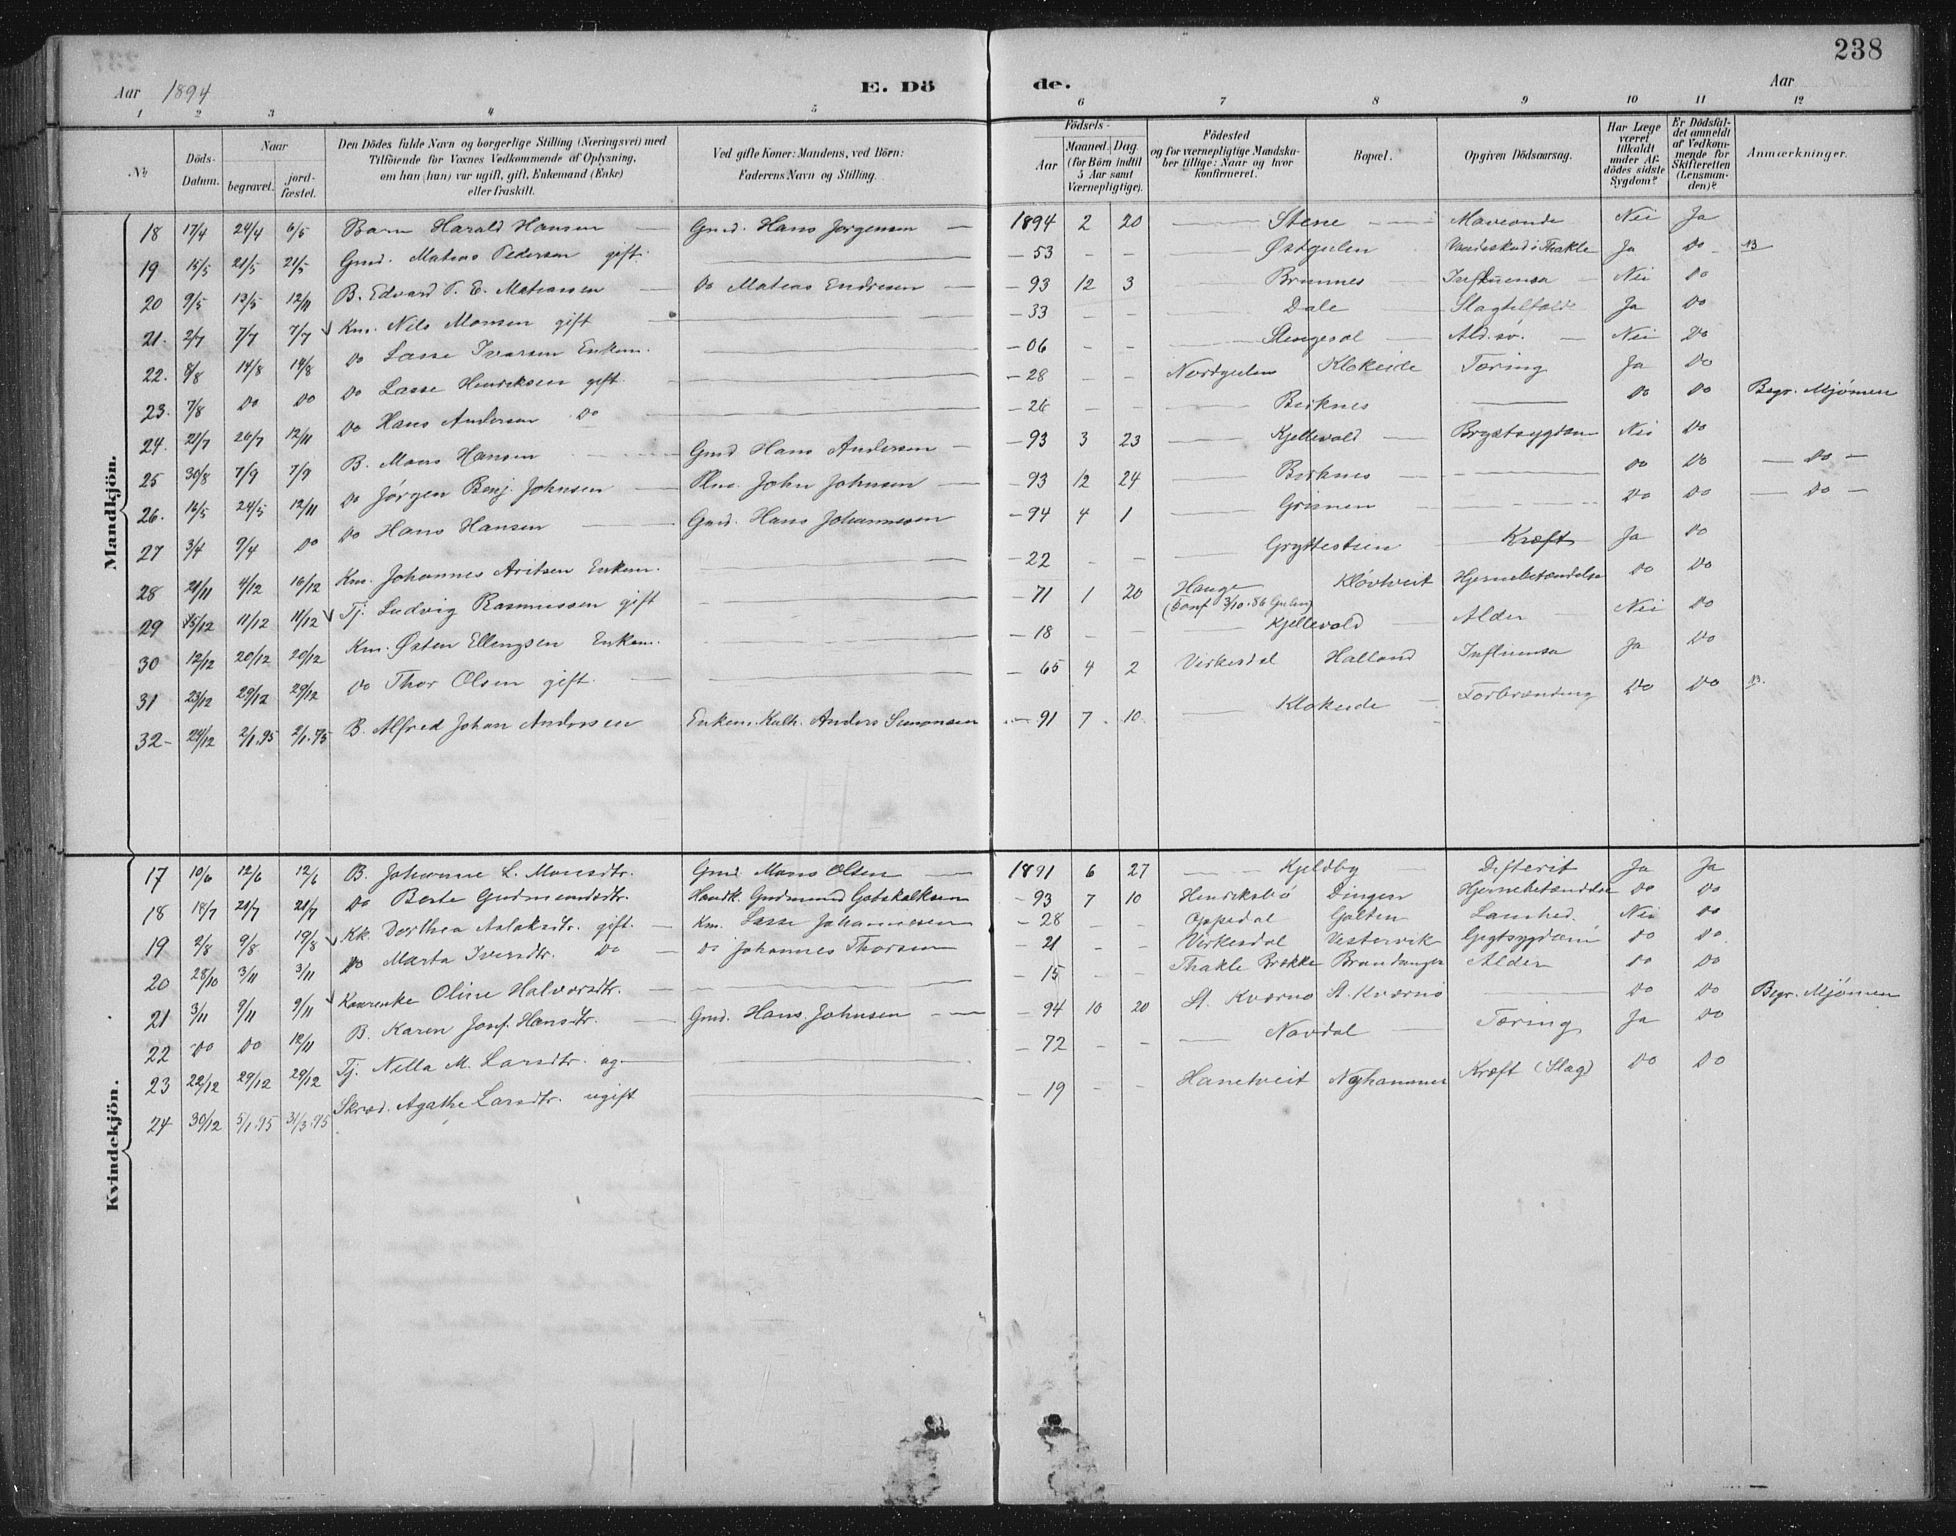 238
Aar 1894 E. Dö de. Aar
1 2 3 4 5 6 7 8 9 10 11 12
No
Döds-Datum.
Naar begravet. jordfæstet.
Den Dödes fulde Navn og borgerlige Stilling (Næringsvei) med Tilföiende for Voxnes Vedkommende af Oplysning, om han (hun) var ugift, gift, Enkemand (Enke) eller fraskilt.
Ved gifte Koner: Mandens, ved Börn: Faderens Navn og Stilling.
Födsels- Aar Maaned. Dag. (for Börn indtil 5 Aar samt Værnepligtige).
Födested og for værnepligtige Mandskaber tillige: Naar og hvor konfirmeret.
Bopæl.
Opgiven Dödsaarsag.
Har Læge været tilkaldt under Afdödes sidste Sygdom?
Er Dödsfaldet anmeldt af Vedkommende for Skifteretten (Lensmanden)?
Anmærkninger.
Mandkjön.
18 17/4 24/4 6/5 Barn Harald Hansen Gmd. Hans Jørgensen 1894 2 20 Stene Nei Ja
19 15/5 21/5 21/5 Gmd. Matias Pedersen gift - 53 - - Østgulen Vaadeskud i Thakle Ja Do NB
20 9/5 13/5 12/11 B. Edvard T. E. Matiassen Do Matias Endresen - 93 12 3 Brunnes Influensa Nei Do
21. 2/7 7/7 7/7 Km. Nils Monsen gift - 33 - - Dale Slagtilfælde Ja Do
22. 8/8 14/8 14/8 Do Lasse Ivarsen Enkem. - 06 - - Slengesol Ald.sv. Nei Do
23. 7/8 Do Do Do Lasse Henriksen gift - 28 - - Nordgulen Klokeide Tæring Ja Do
24. 21/7 26/7 12/11 Do Hans Andersen Do - 26 - - Birknes Do Do Begr. Mjømen
25 30/8 7/9 7/9 B. Mons Hansen Gmd Hans Andersen - 93 3 23 Kjellevold Brystsygdom Nei Do
26. 16/5 24/5 12/11 Do Jørgen Benj. Johnsen Plm. John Johnsen - 93 12 24 Birknes Do Do - Do -
27 3/4 9/4 Do Do Hans Hansen Gmd. Hans Johannesen - 94 4 1 Grisnen Do Do - Do -
28 21/11 4/12 16/12 Km. Johannes Aritsen Enkem. - 22 - - Gryttestien Kræft Ja Do
29 5/12 11/12 11/12 Tj. Ludvig Rasmussen gift - 71 1 20 Hauge (Conf 3/10.86 Gulen) Kløvtveit Hjernebetændelse Do Do
30 12/12 20/12 20/12 Km. Østen Ellingsen Enkem. - 18 - - Kjellevold Alder Nei Do
31 23/12 29/12 29/12 Do Thor Olsen gift - 65 4 2 Virkesdal Halland Influensa Ja Do
32- 24/12 2/1.95 2/1.95 B. Alfred Johan Andersen Enkem. Kulh. Anders Simonsen - 91 7 10 Klokeide Forbrænding Do Do NB.
Kvindekjön.
17 10/6 12/6 12/6 B. Johanne L. Monsdtr. Gmd. Mons Olsen 1891 6 27 Kjeldby Difterit Ja Ja
18 18/7 21/7 21/7 Do Berte Gudmundsdtr. Handk. Gudmund Gotskalksen - 93 7 10 Henriksbø Dingen Hjernebetændelse Do Do
19 2/8 9/8 19/8 Kk. Dorthea Aslaksdtr. gift Km. Lasse Johannesen - 28 - - Oppedal Galten Lamhed. Nei Do
20 28/10 3/11 3/11 Do Marta Iversdtr. Do Do Johannes Thorsen - 21 - - Virkesdal Vestervik Gigtsygdom Do Do
21 3/11 9/11 9/11 Kaarenke Oline Halvorsdtr. - 15 - - Thakle Brekke Brandanger Alder Do Do
22 Do Do 12/11 B. Karen Josf. Hansdtr. Gmd. Hans Johnsen - 94 10 20 St. Kværnø St. Kværnø Do Do Begr. Mjømen
23 22/12 29/12 29/12 Tj. Nella M. Larsdtr. ug - 72 - - Novdal Tæring Ja Do
24 30/12 5/1.95 31/3.95 Skræd. Agathe Larsdtr. ugift - 19 - - Hanetveit Nyhammer Kræft (Slag) Do Do